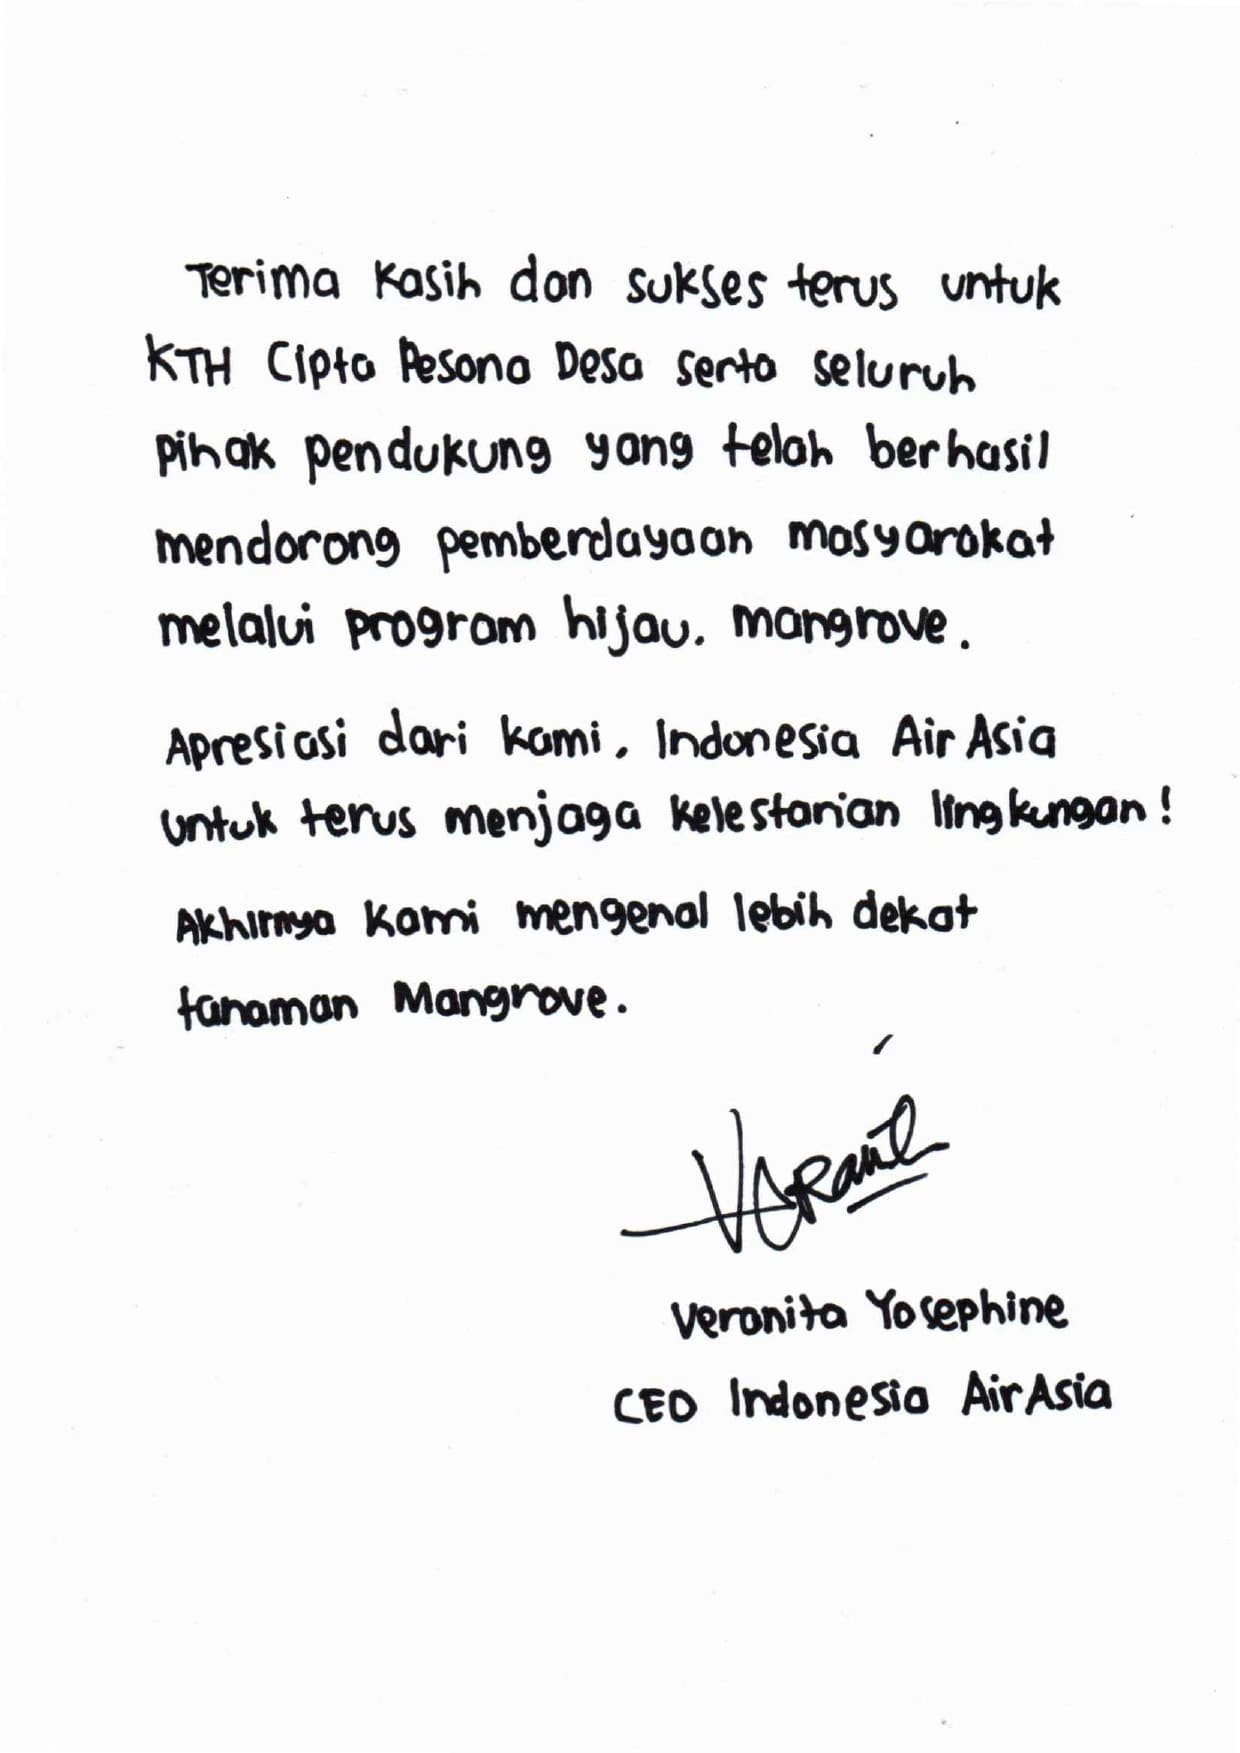 Terima Kasih dan sukses terus untuk
KTH Cipta Pesona Desa serta seluruh
pihak pendukung yang telah berhasil
mendorong pemberdayaan masyarakat
melalui program hijau. mangrove.
Apresiasi dari kami, Indonesia AirAsia
untuk terus menjaga kelestarian lingkungan!
Akhirnya Kami mengenal lebih dekat
tanaman Mangrove.
Veranita Yosephine
CEO Indonesia AirAsia